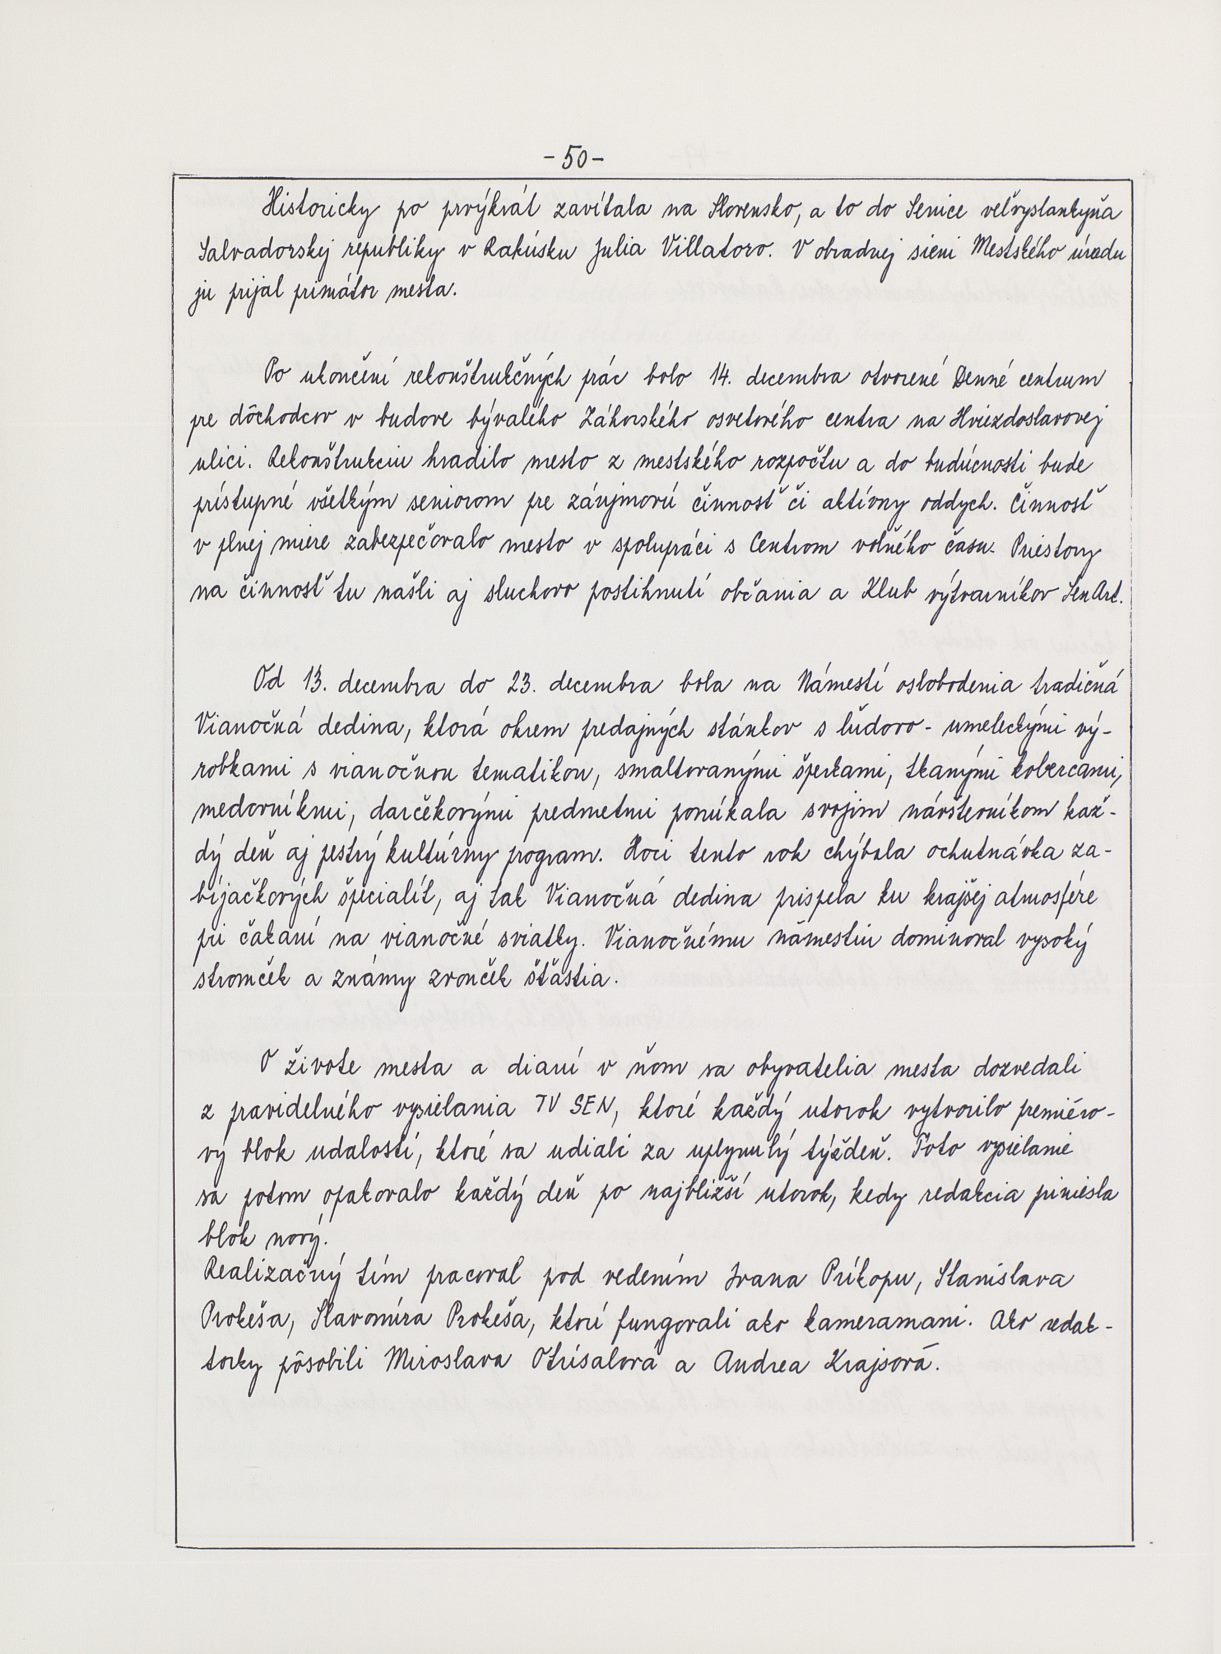 - 50 -
Historicky po prvýkrát zavítala na Slovensko, a to do Senice veľvyslankyňa
Salvadorskej republiky v Rakúsku Julia Villatoro. V obradnej sieni Mestského úradu
ju prijal primátor mesta.
Po ukončení rekonštrukčných prác bolo 14. decembra otvorené Denné centrum
pre dôchodcov v budove bývalého Záhorského osvetového centra na Hviezdoslavovej
ulici. Rekonštrukciu hradilo mesto z mestského rozpočtu a do budúcnosti bude
prístupné všetkým seniorom pre záujmovú činnosť či aktívny oddych. Činnosť
v plnej miere zabezpečovalo mesto v spolupráci s Centrom voľného času. Priestory
na činnosť tu našli aj sluchovo postihnutí občania a Klub výtvarníkov SenArt.
Od 13. decembra do 23. decembra bola na Námestí oslobodenia tradičná
Vianočná dedina, ktorá okrem predajných stánkov s ľudovo - umeleckými vý-
robkami s vianočnou tematikou, smaltovanými šperkami, tkanými kobercami,
medovníkmi, darčekovými predmetmi ponúkala svojim návštevníkom kaž-
dý deň aj pestrý kultúrny program. Hoci tento rok chýbala ochutnávka za-
bíjačkových špecialít, aj tak Vianočná dedina prispela ku krajšej atmosfére
pri čakaní na vianočné sviatky. Vianočnému námestiu dominoval vysoký
stromček a známy zvonček šťastia.
O živote mesta a dianí v ňom sa obyvatelia mesta dozvedali
z pravidelného vysielania TV SEN, ktoré každý utorok vytvorilo premiéro-
vý blok udalostí, ktoré sa udiali za uplynulý týždeň. Toto vysielanie
sa potom opakovalo každý deň po najbližší utorok, kedy redakcia priniesla
blok nový.
Realizačný tím pracoval pod vedením Ivana Príkopu, Stanislava
Prokeša, Slavomíra Prokeša, ktorí fungovali ako kameramani. Ako redak-
torky pôsobili Miroslava Otrísalová a Andrea Krajsová.